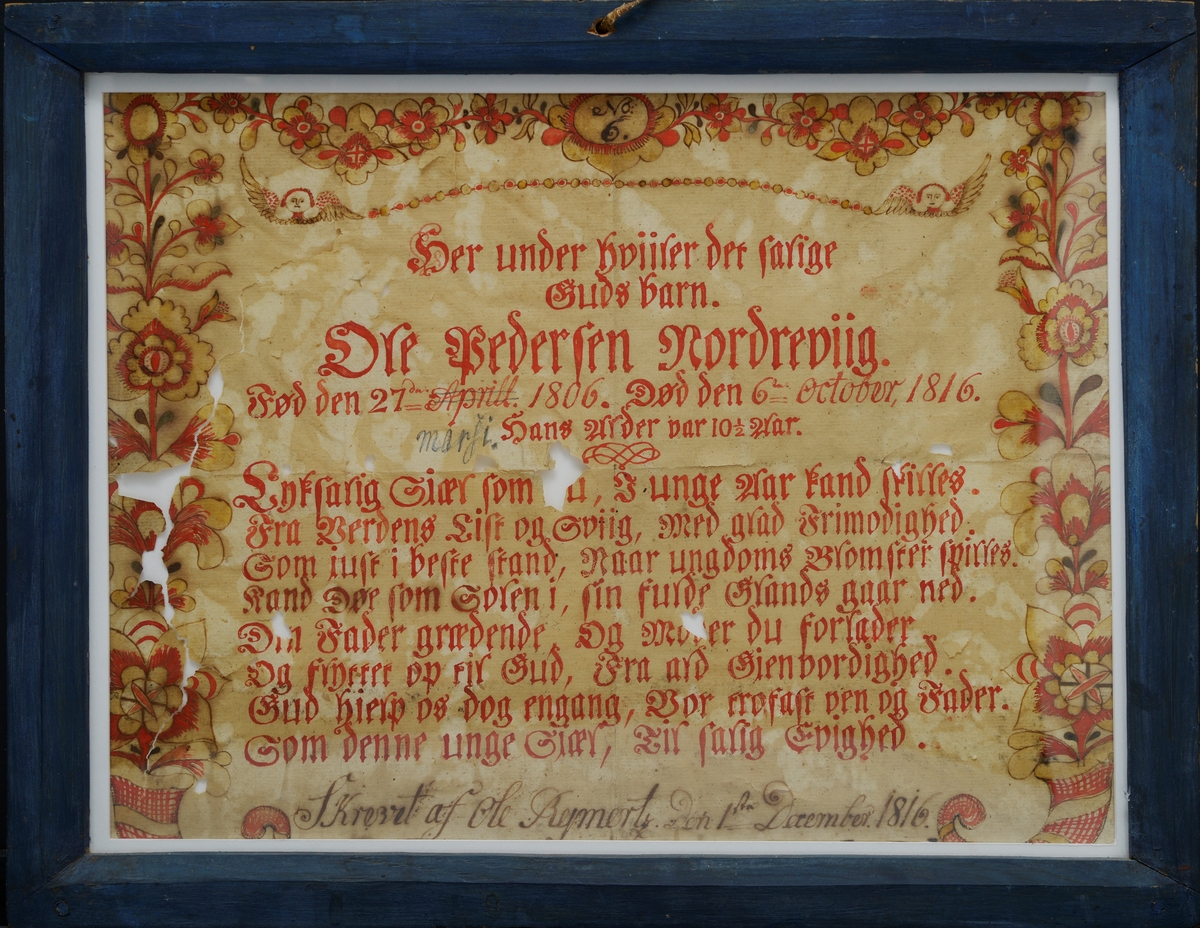 No.
6.
Her under hviiler det salige
Guds barn.
Ole Pedersen Nordreviig.
Fød den 27de Aprill. 1806. Død den 6te October, 1816.
martsi. Hans Alder var 10½ Aar.
Lyksalig Siæl som, I unge Aar kand skilles.
Fra Verdens List og Sviig, Med glad Frimodighed.
Som just i beste stand, Naar ungdoms Blomster spilles.
Kand Døe som Solen i, sin fulde Glands gaar ned.
Din Fader grædende, Og Moder du forlader
Og flyttet op til Gud, Fra ald Gienvordighed.
Gud hielp os dog engang, Vor trofast ven og Fader.
Som denne unge Siæl, Til salig Evighed.
Skrevit af Ole Den 1ste December 1816.